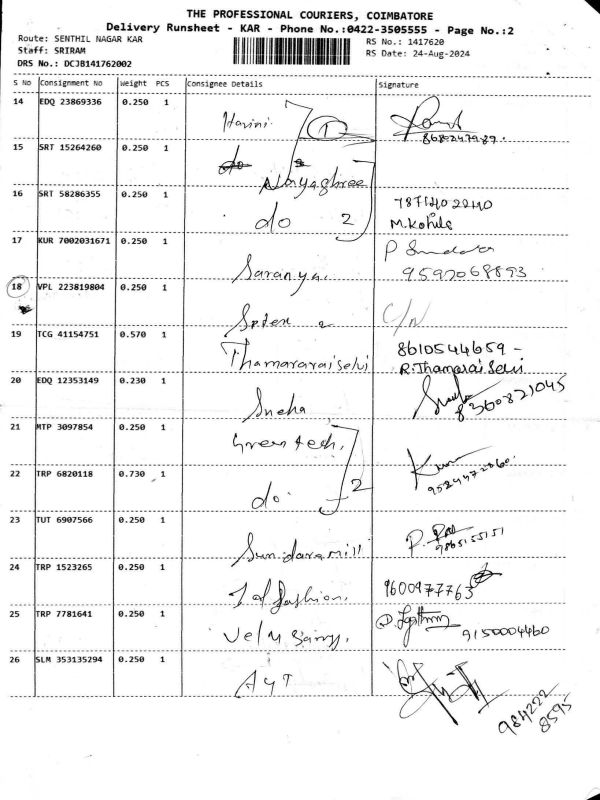 THE PROFESSIONAL COURIERS, COIMBATORE
Delivery Runsheet - KAR - Phone No.:0422-3505555 - Page No.:2
Route: SENTHIL NAGAR KAR
RS No.: 1417620
Staff: SRIRAM
RS Date: 24-Aug-2024
DRS No.: DCJB141762002
S No Consignment No Weight PCS Consignee Details Signature
14 EDQ 23869336 0.250 1
Harini 1
15 SRT 15264260 0.250 1
do
16 SRT 58286355 0.250 1
do 2
M.Kohila
17 KUR 7002031671 0.250 1
Saranya. 9597068893
18 VPL 223819804 0.250 1
C/N
19 TCG 41154751 0.570 1
Thamararaiselvi 8610544659 -
R.Thamarai Selvi
20 EDQ 12353149 0.230 1
Sneha 8360821045
21 MTP 3097854 0.250 1
Green tech.
22 TRP 6820118 0.730 1
do. 2
23 TUT 6907566 0.250 1
Sundaramill 9865155151
24 TRP 1523265 0.250 1
9600977763
25 TRP 7781641 0.250 1
9150004460
26 SLM 353135294 0.250 1
984222
8595